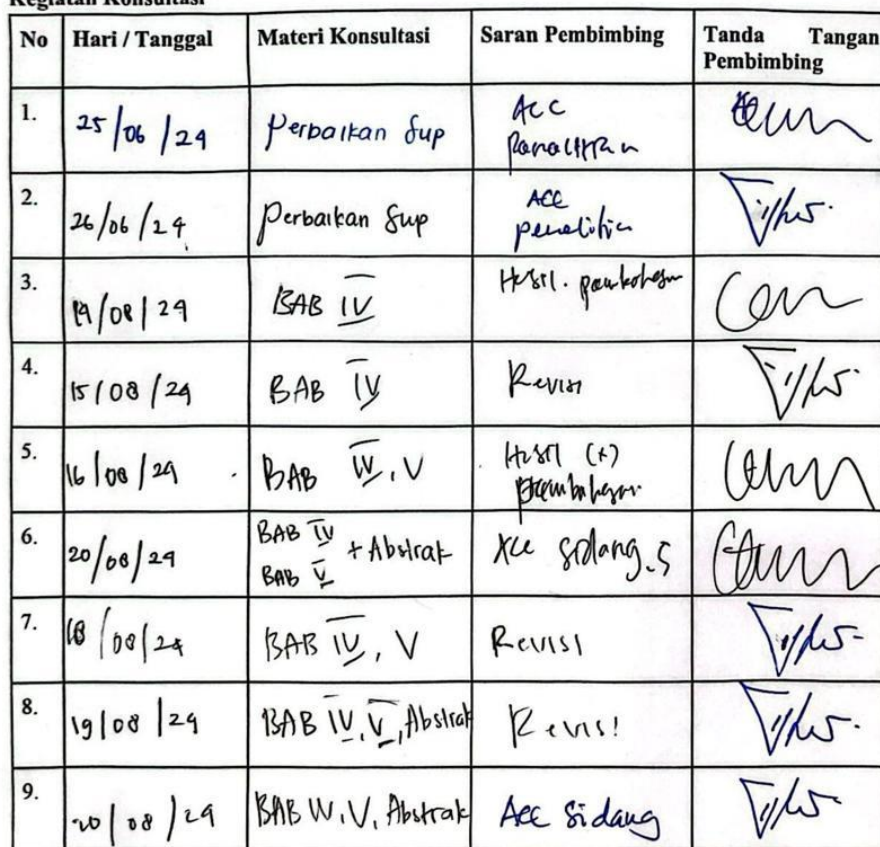 Kegiatan Konsultasi
No Hari / Tanggal Materi Konsultasi Saran Pembimbing Tanda Tangan
Pembimbing
1. 25/06/24 Perbaikan Sup ACC
2. 26/06/24 Perbaikan Sup ACC
penelitian
3. /08/24 BAB IV Hasil.
4. 15/08/24 BAB IV Revisi
5. 16/08/24 BAB IV, V Hasil (+)
pembahasan
6. 20/08/24 BAB IV
BAB V + Abstrak Acc sidang
7. 18/08/24 BAB IV, V Revisi
8. 19/08/24 BAB IV, V, Abstrak Revisi
9. 20/08/24 BAB IV, V, Abstrak Acc Sidang